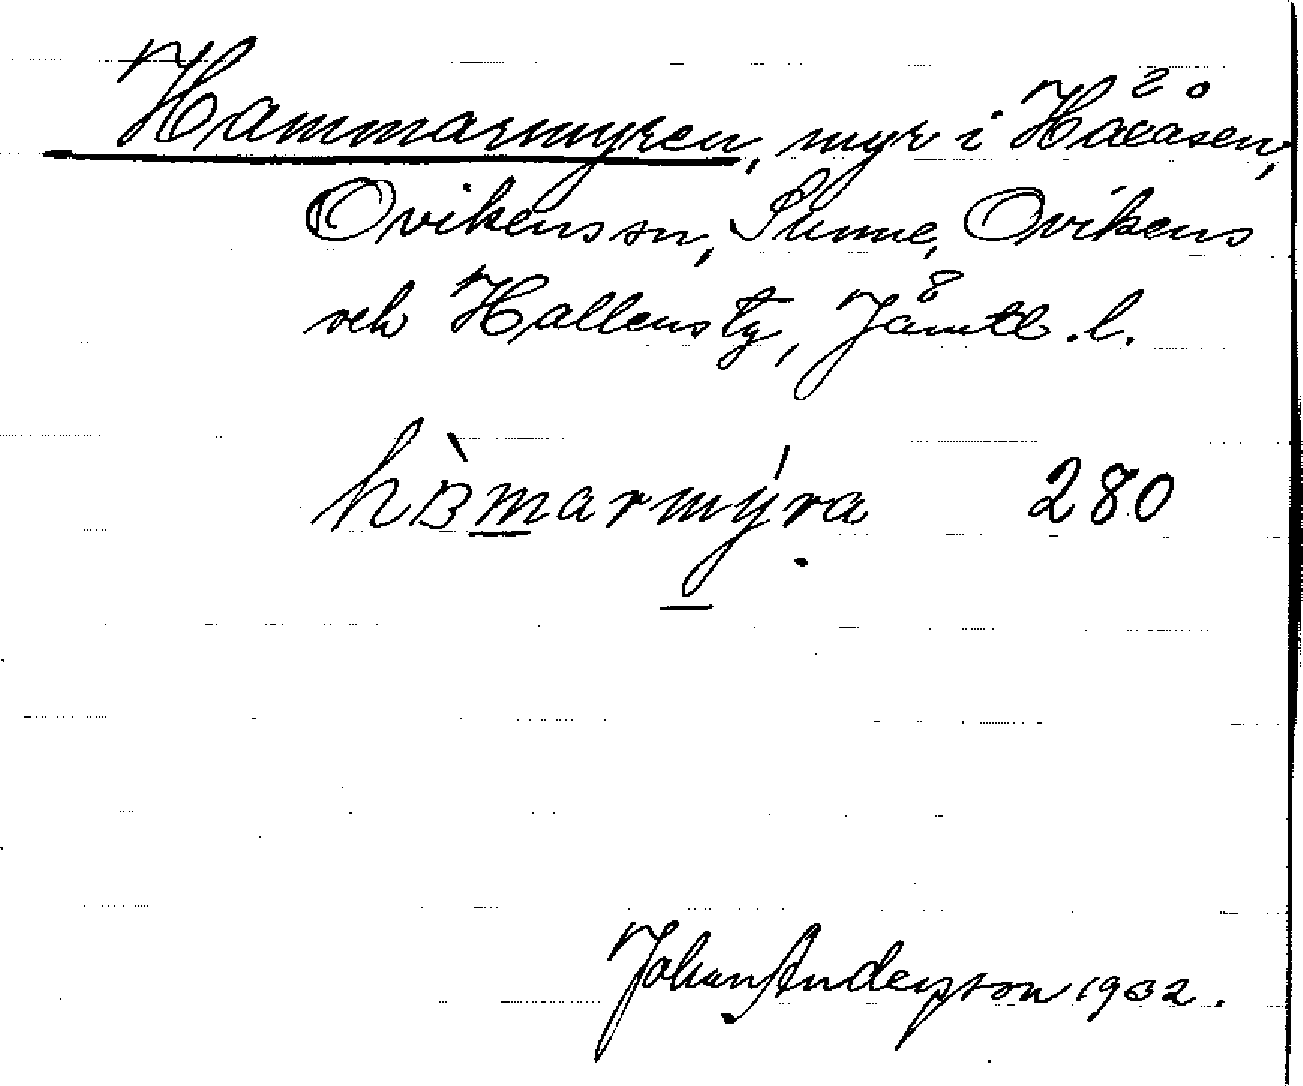 Hammarmyren, myr i Häcåsen,
Ovikens sn, Sunne, Ovikens
och Hallens tg, Jämtl. l.
hamarmýra 280
Johan Anderson 1932.